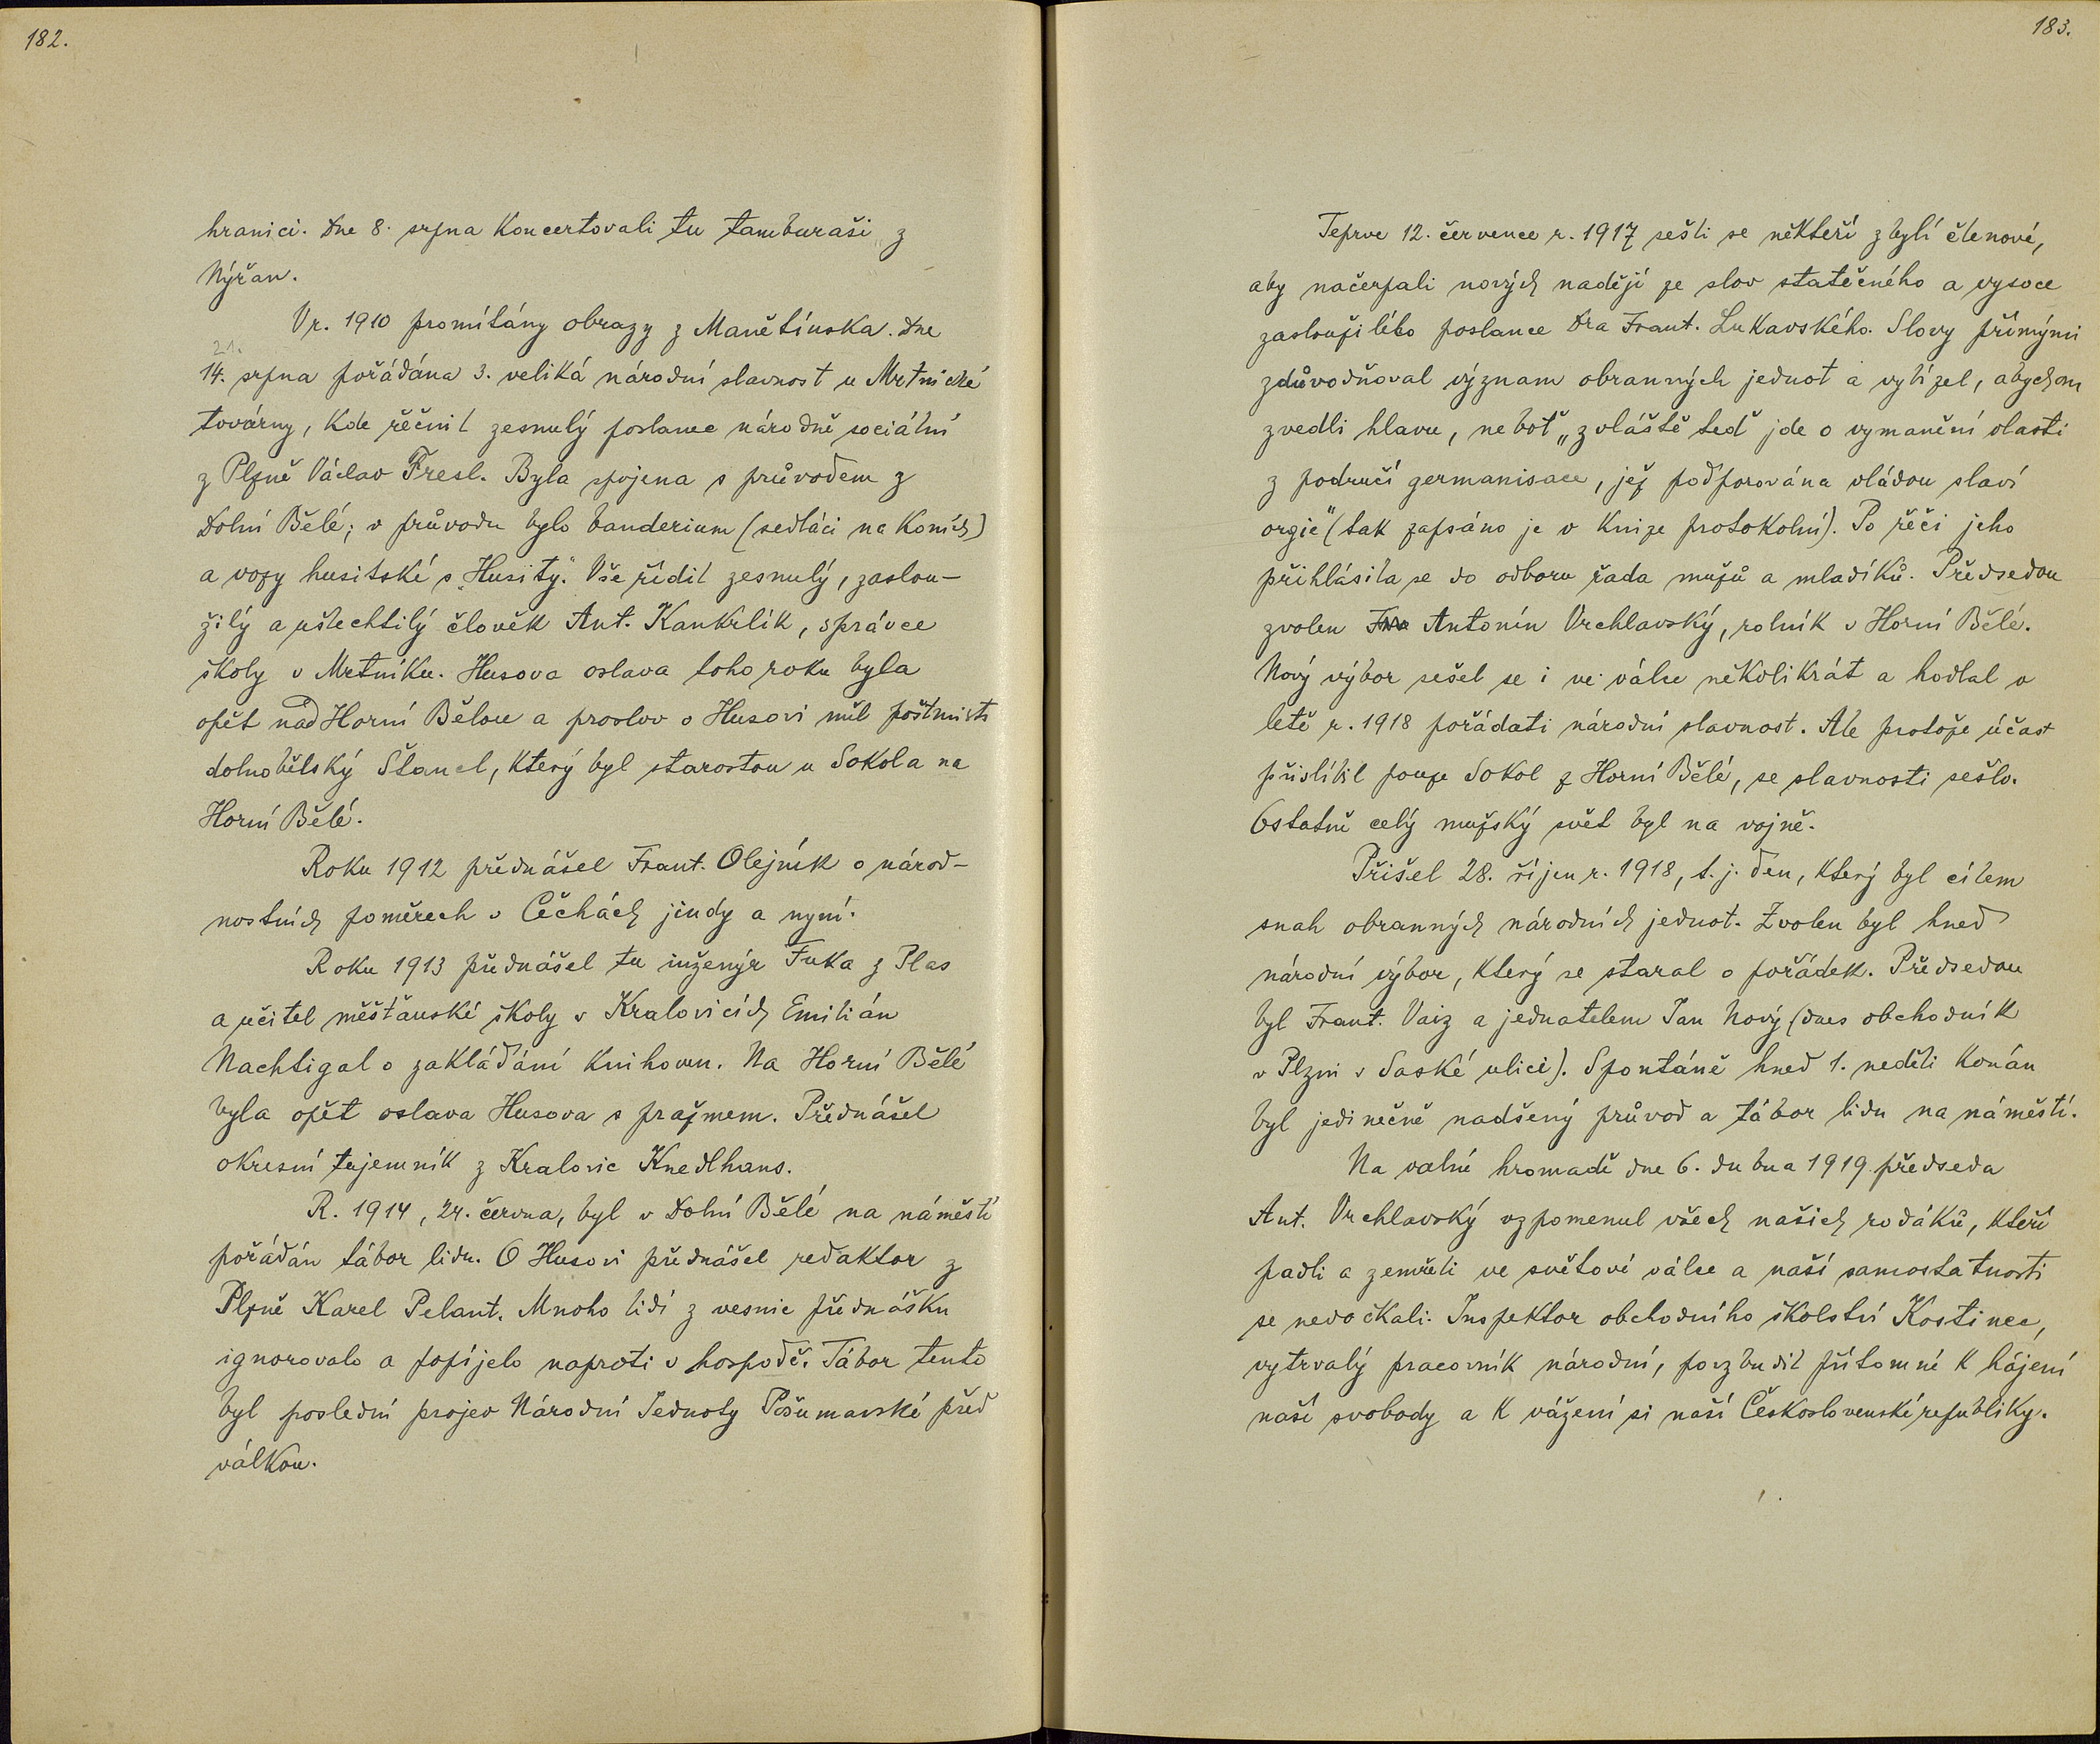 182.
hranici. Dne 8. srpna koncertovali tu tamburaši z
Nýřan.
V r. 1910 promítány obrazy z Manětínska. Dne
21.
14. srpna pořádána 3. veliká národní slavnost u Mrtnické
továrny, kde řečnil zesnulý poslanec národně sociální
z Plzně Václav Fresl. Byla spojena s průvodem z
Dolní Bělé; v průvodu bylo banderium (sedláci na koních)
a vozy husitské s „Husity". Vše řídil zesnulý, zaslou-
žilý a ušlechtilý člověk Ant. Kankrlík, správce
školy v Mrtníku. Husova oslava toho roku byla
opět nad Horní Bělou a proslov o Husovi měl poštmistr
dolnobělský Štancl, který byl starostou u Sokola na
Horní Bělé.
Roku 1912 přednášel Frant. Olejník o národ-
nostních poměrech v Čechách jindy a nyní.
Roku 1913 přednášel tu inženýr Fuka z Plas
a učitel měšťanské školy v Kralovicích Emilián
Nachtigal o zakládání knihoven. Na Horní Bělé
byla opět oslava Husova s pražmem. Přednášel
okresní tajemník z Kralovic Knedlhans.
R. 1914, 24. června, byl v Dolní Bělé na náměstí
pořádán tábor lidu. O Husovi přednášel redaktor z
Plzně Karel Pelant. Mnoho lidí z vesnic přednášku
ignorovalo a popíjelo naproti v hospodě. Tábor tento
byl poslední projev Národní Jednoty Pošumavské před
válkou.
183.
Teprve 12. července r. 1917 sešli se někteří zbylí členové,
aby načerpali nových nadějí ze slov statečného a vysoce
zasloužilého poslance Dra Frant. Lukavského. Slovy přímými
zdůvodňoval význam obranných jednot a vybízel, abychom
zvedli hlavu, neboť „zvláště teď jde o vymanění vlasti
z područí germanisace, jež podporována vládou slaví
orgie" (tak zapsáno je v knize protokolní). Po řeči jeho
přihlásila se do odboru řada mužů a mladíků. Předsedou
zvolen Antonín Vrchlavský, rolník v Horní Bělé.
Nový výbor sešel se i ve válce několikrát a hodlal v
letě r. 1918 pořádati národní slavnost. Ale protože účast
přislíbil pouze Sokol z Horní Bělé, se slavnosti sešlo.
Ostatně celý mužský svět byl na vojně.
Přišel 28. říjen r. 1918, t. j. den, který byl cílem
snah obranných národních jednot. Zvolen byl hned
národní výbor, který se staral o pořádek. Předsedou
byl Frant. Vaiz a jednatelem Jan Nový (dnes obchodník
v Plzni v Saské ulici). Spontáně hned 1. neděli konán
byl jedinečně nadšený průvod a tábor lidu na náměstí.
Na valné hromadě dne 6. dubna 1919 předseda
Ant. Vrchlavský vzpomenul všech našich rodáků, kteří
padli a zemřeli ve světové válce a naší samostatnosti
se nedočkali. Inspektor obchodního školství Kostinec,
vytrvalý pracovník národní, povzbudil přítomné k hájení
naší svobody a k vážení si naší Československé republiky.